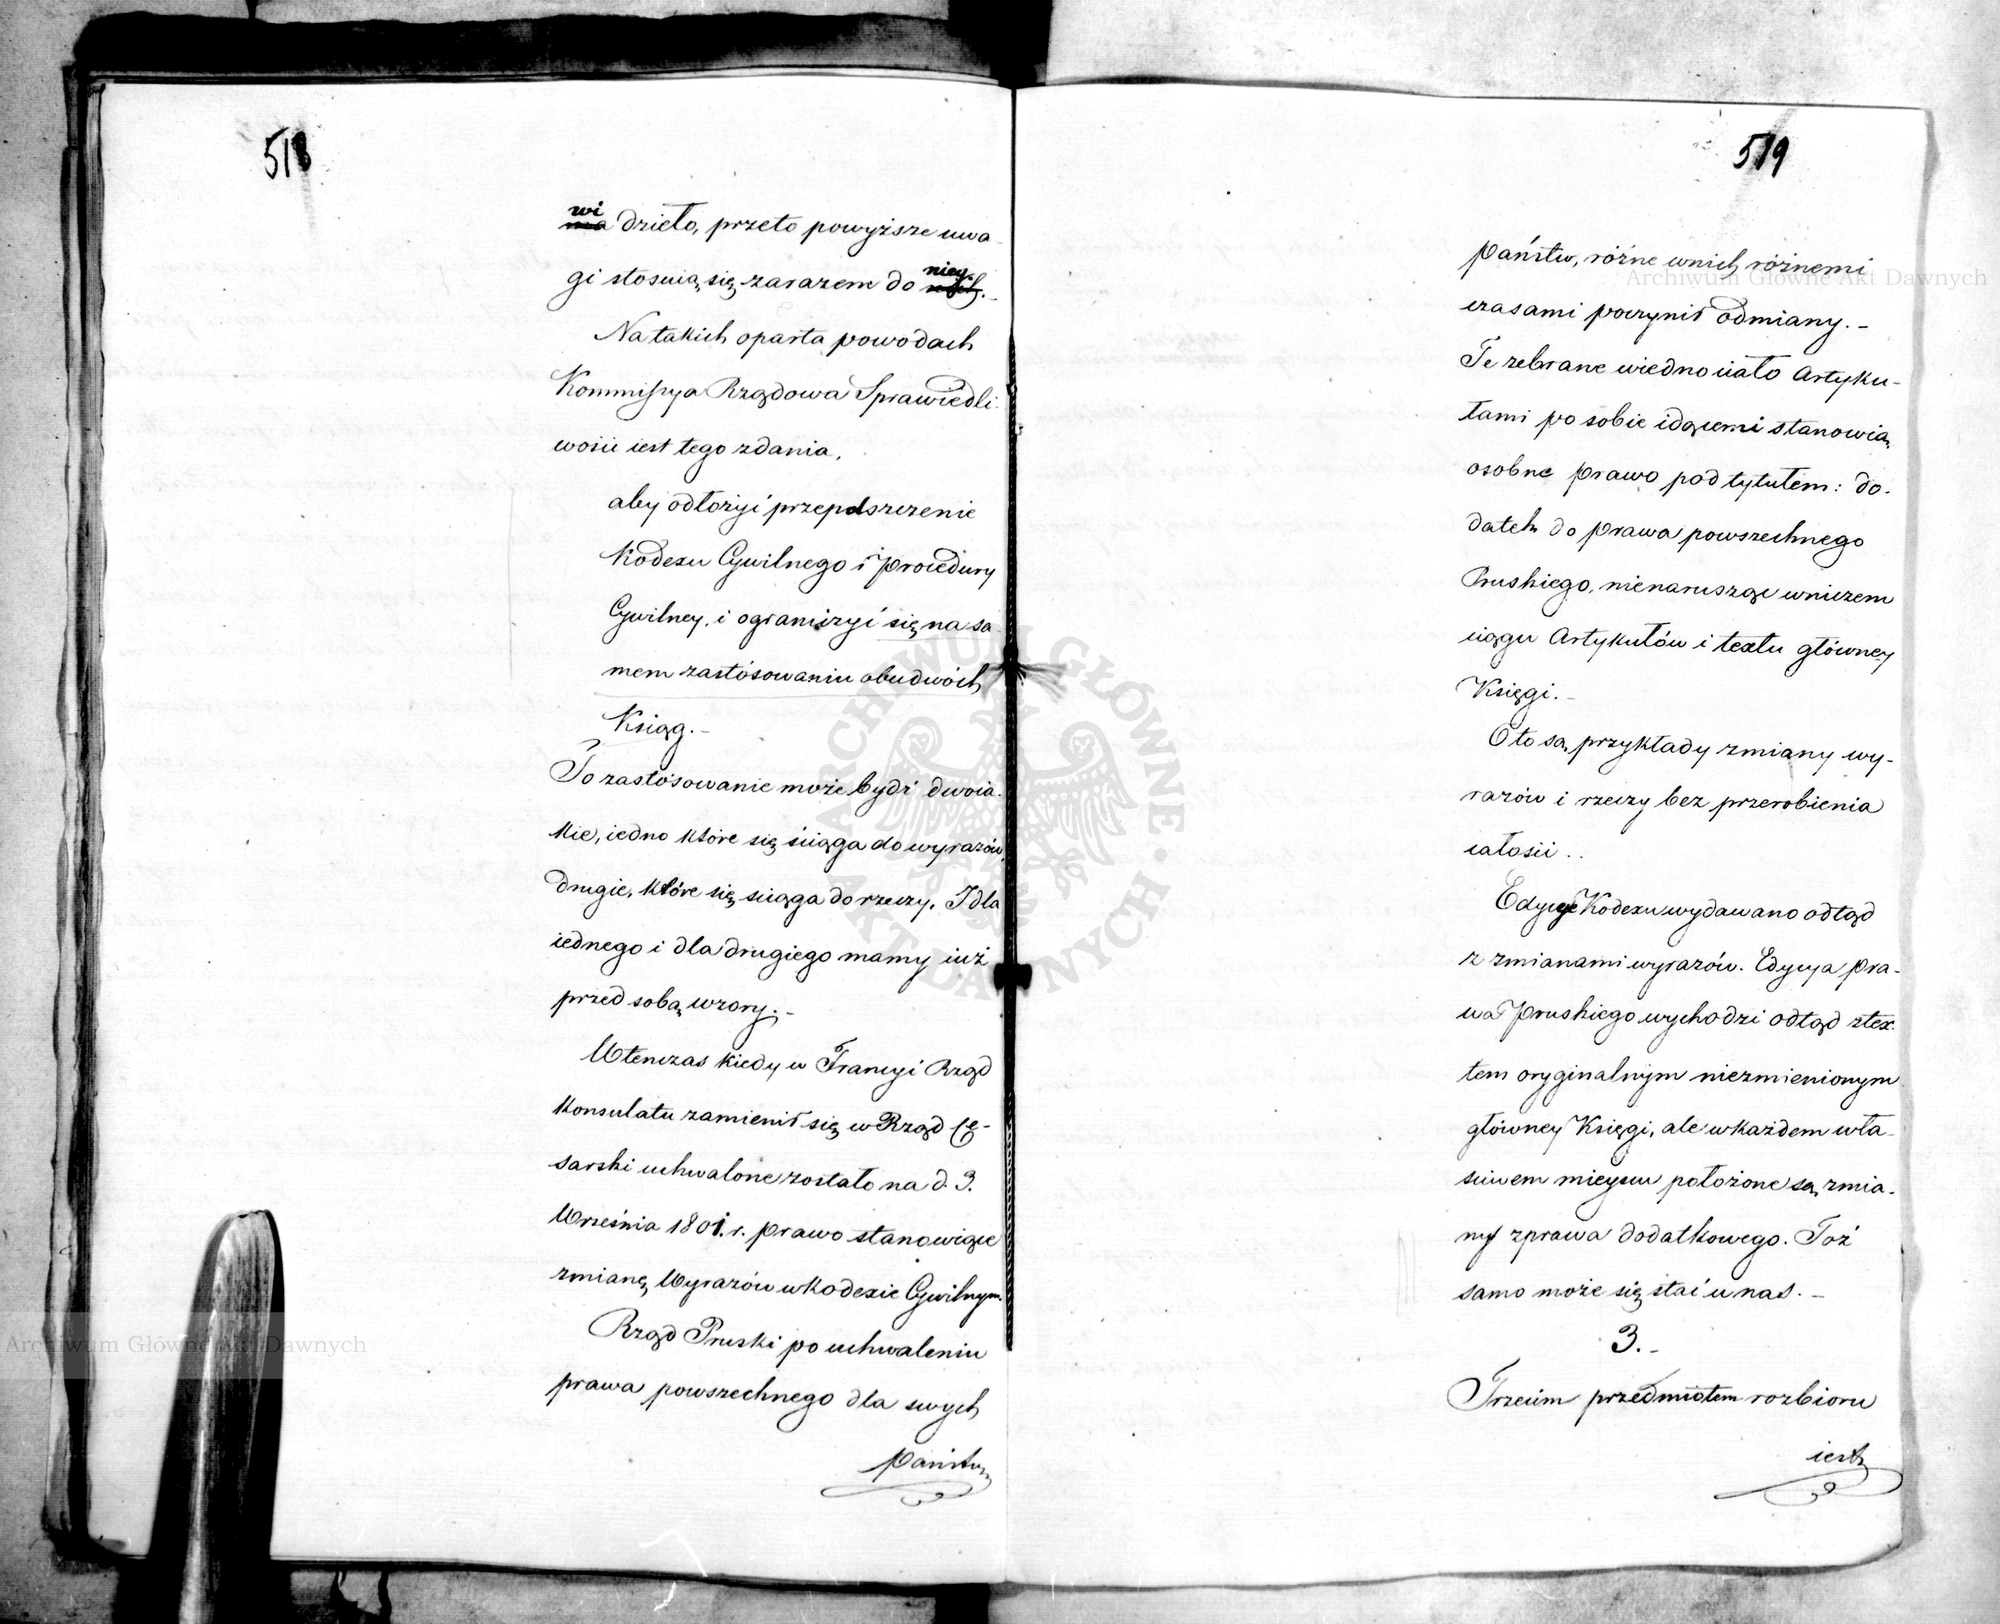 518
wi
ma dzieło, przeto powyższe uwa-
gi stosuią się zarazem do niey.
Na takich oparta powodach
Kommissya Rządowa Sprawiedli-
wości iest tego zdania,
aby odłożyć przepolszczenie
Kodexu Cywilnego i procedury
Cywilney, i ograniczyć się na sa-
mem zastósowaniu obudwóch
Ksiąg.-
To zastósowanie może bydź dwoia-
kie, iedno które się ściąga do wyrazów,
drugie, które się ściąga do rzeczy. I dla
iednego i dla drugiego mamy iuż
przed sobą wzory.-
Wtenczas kiedy w Francyi Rząd
Konsulatu zamienił się w Rząd Ce-
sarski uchwalone zostało na d. 3.
Września 1801. r. prawo stanowiące
zmianę Wyrazów w Kodexie Cywilnym.
Rząd Pruski po uchwaleniu
prawa powszechnego dla swych
państw
519
państw, różne w nich różnemi
czasami poczynił odmiany.-
Te zebrane w iedno ciało Artyku-
łami po sobie idącemi stanowią
osobne prawo pod tytułem: do-
datek do prawa powszechnego
Pruskiego, nienaruszaiąc w niczem
ciągu Artykułów i textu główney
Księgi.-
Oto są przykłady zmiany wy-
razów i rzeczy bez przerobienia
całości..
Edycye Kodexu wydawano odtąd
z zmianami wyrazów. Edycya pra-
wa Pruskiego wychodzi odtąd z tex-
tem oryginalnym niezmienionym
główney Księgi, ale w każdem wła-
ściwem mieyscu położone są zmia-
ny z prawa dodatkowego. Toż
samo może się stać u nas.-
3.-
Trzecim przedmiotem rozbioru
iest
Archiwum Główne Akt Dawnych
Archiwum Główne Akt Dawnych
ARCHIWUM GŁÓWNE · AKT DAWNYCH ·